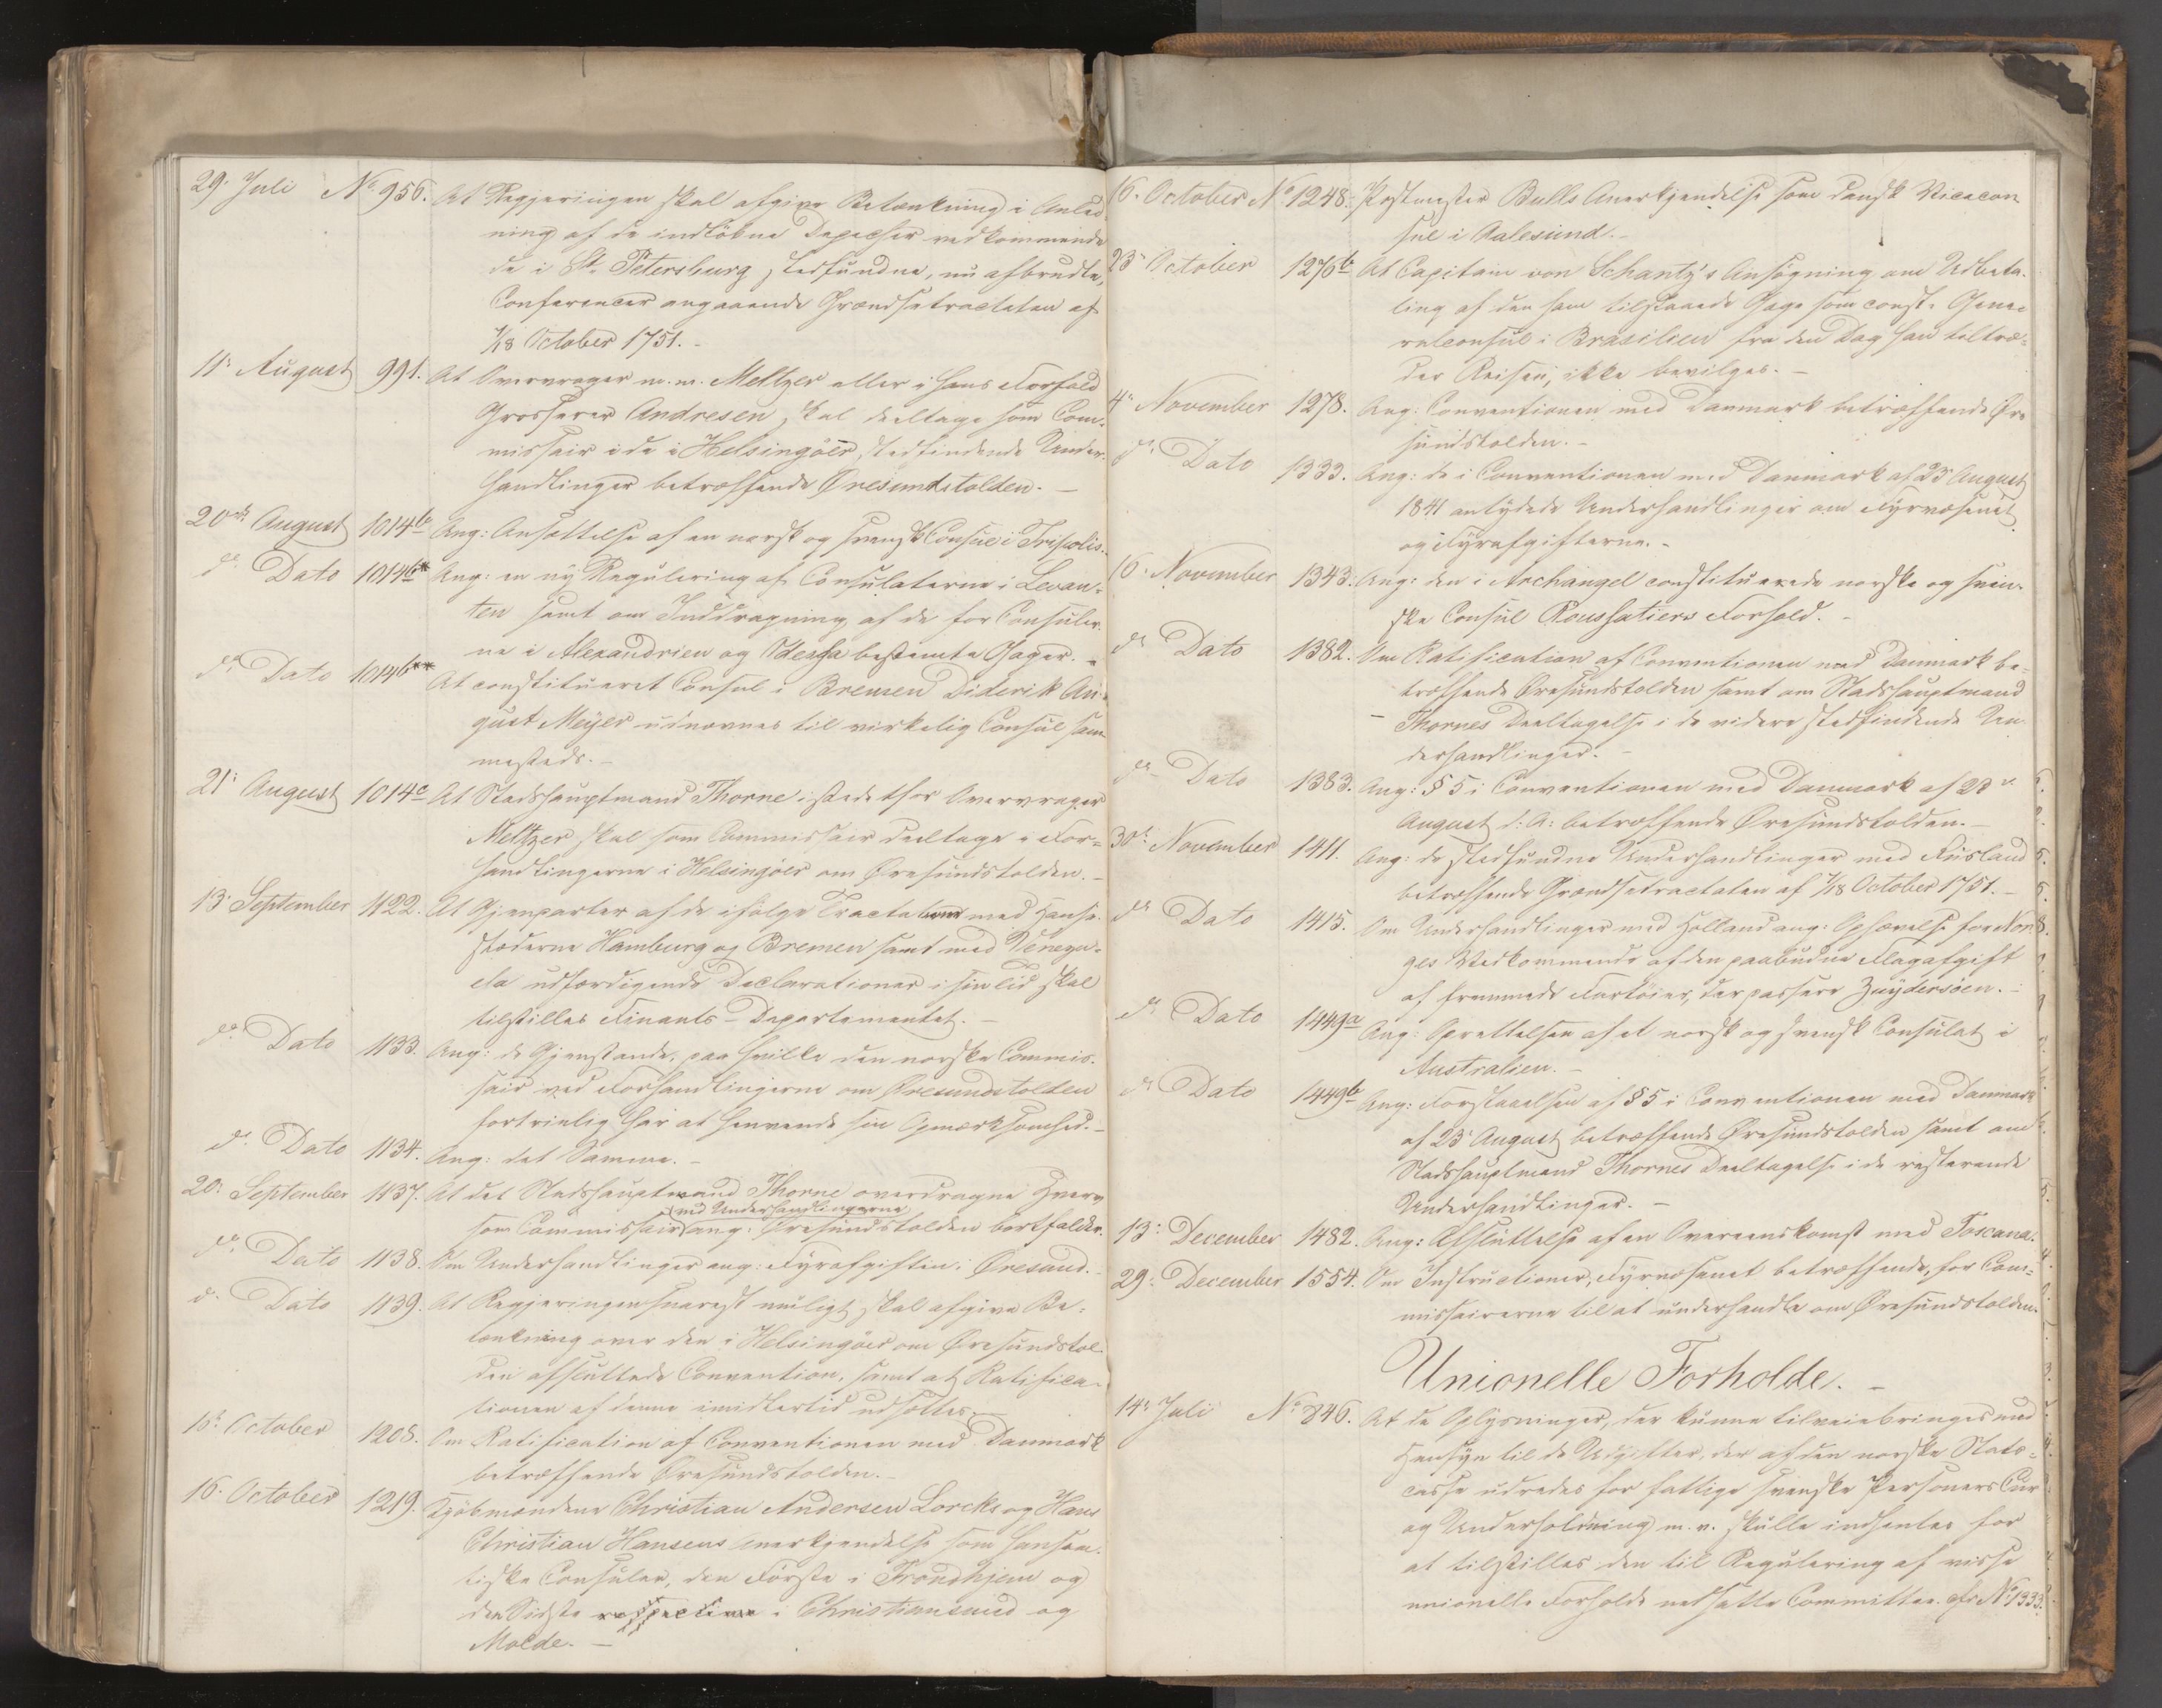 29. Juli No 956. At Regjeringen skal afgive Betænkning i Anled
ning af de indløbne Depecher vedkommende
de i St. Petersburg stedfundne, nu afbrudte,
Conferencer angaaende Grændsetractaten af
7/18 October 1751. -
11. August 991. At Overvrager m. m. Meltzer eller i hans Forfald
Grosserer Andresen skal deeltage som Com-
missair i de i Helsingöer stedfindende Under-
handlinger betræffende Øresundstolden. -
20de August 1014b Ang: Ansættelse af en norsk og svensk Consul i Tripolis.
do Dato 1014b* Ang: en ny Regulering af Consulaterne i Levan-
ten samt om Inddragning af de for Consuler-
ne i Alexandrien og Odessa bestemte Gager. -
do Dato 1014b** At constitueret Consul i Bremen Diderik Au-
gust Meyer udnævnes til virkelig Consul sam-
mesteds. -
21. August 1014c At Stadshauptmand Thorne istedetfor Overvrager
Meltzer skal som Commissair deeltage i For-
handlingerne i Helsingöer om Øresundstolden. -
13. September 1122. At Gjenparter af de ifølge Tractaterne med Hanse-
stæderne Hamburg og Bremen samt med Venezu-
ela udfærdigende Declarationer i sin Tid skal
tilstilles Finants-Departementet. -
do Dato 1133. Ang: de Gjenstande, paa hvilke den norske Commis-
sair ved Forhandlingerne om Øresundstolden
fortrinlig har at henvende sin Opmærksomhed. -
do Dato 1134. Ang: det Samme. -
20. September 1137. At det Stadshauptmand Thorne overdragne Hverv
ved Underhandlingerne
som Commissair ang: Øresundstolden bortfalder.
do Dato 1138. Om Underhandlinger ang: Fyrafgiften i Øresund. -
do Dato 1139. At Regjeringen snarest muligt skal afgive Be-
tænkning over den i Helsingöer om Øresundstol-
den afsluttede Convention, samt at Ratifica-
tionen af denne imidlertid udsættes. -
October 1208. Om Ratification af Conventionen med Danmark
betræffende Øresundstolden. -
16. October 1219. Kjøbmændene Christian Andersen Lorcks og Hans
Christian Hansens Anerkjendelse som hansea-
tiske Consuler, den Første i Trondhjem og
den Sidste respective i Christiansund og
Molde. -
16. October No 1248. Postmester Bulls Anerkjendelse som dansk Vicecon
sul i Aalesund. -
23. October 1276b At Capitain von Schantz's Ansøgning om Udbeta-
ling af den ham tilstaaede Gage som const. Gene-
ralconsul i Brasilien fra den Dag han tiltræ-
der Reisen, ikke bevilges. -
4. November 1278. Ang: Conventionen med Danmark betræffende Øre
sundstolden. -
do Dato 1333. Ang: de i Conventionen med Danmark af 23 August
1841 antydede Underhandlinger om Fyrvæsenet
og Fyrafgifterne. -
16. November 1343. Ang: den i Archangel constituerede norske og sven-
ske Consul Roussatiers Forhold. -
do Dato 1382. Om Ratification af Conventionen med Danmark be-
træffende Øresundstolden samt om Stadshauptmand
Thornes Deeltagelse i de videre stedfindende Un-
derhandlinger. -
do Dato 1383. Ang: § 5 i Conventionen med Danmark af 23
August d: A: betræffende Øresundstolden. -
30. November 1411. Ang: de stedfundne Underhandlinger med Rusland
betræffende Grændsetractaten af 7/18 October 1751. -
do Dato 1415. Om Underhandlinger med Holland ang: Ophævelse for Nor-
ges Vedkommende af den paabudne Flagafgift
af fremmede Fartøier, der passere Zuydersøen. -
do Dato 1449a Ang: Oprettelsen af et norsk og svensk Consulat i
Australien. -
do Dato 1449b Ang: Forstaaelsen af § 5 i Conventionen med Danmark
af 23 August betræffende Øresundstolden samt om
Stadshauptmand Thornes Deeltagelse i de resterende
Underhandlinger. -
13. December 1482. Ang: Afsluttelse af en Overeenskomst med Toscana.
29. December 1554. Om Instructioner, Fyrvæsenet betræffende, for Com-
missairerne til at underhandle om Øresundstolden.
Unionelle Forholde. -
14. Juli No 846. At de Oplysninger, der kunne tilveiebringes med
Hensyn til de Udgifter, der af den norske Stats-
casse udredes for fattige svenske Personers Cur
og Underholdning m. v. skulle indhentes for
at tilstilles den til Regulering af visse
unionelle Forholde nedsatte Committee. cfr No 1333.